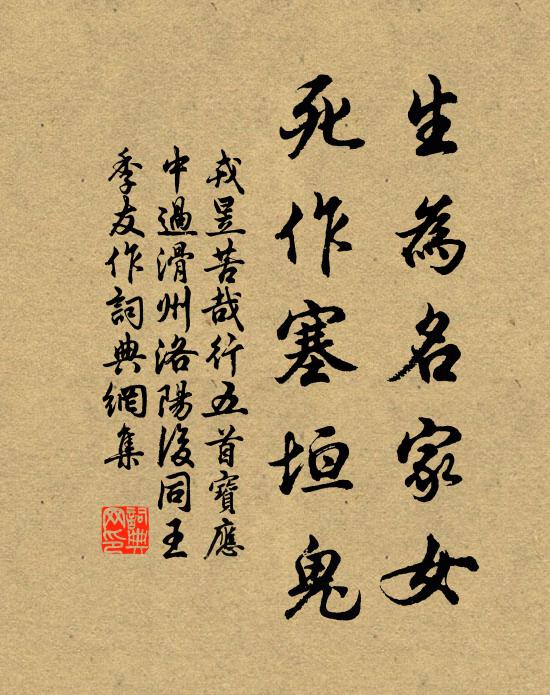 生為名家女
死作塞垣鬼
戎昱苦哉行五首寶應
中過滑州洛陽後同王
季友作詞典網集
詞典
网印